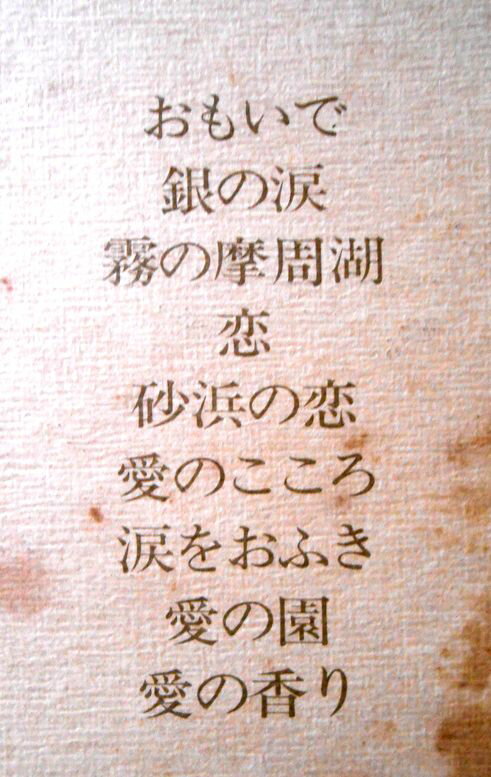 おもいで
銀の涙
霧の摩周湖
恋
砂浜の恋
愛のこころ
涙をおふき
愛の園
愛の香り